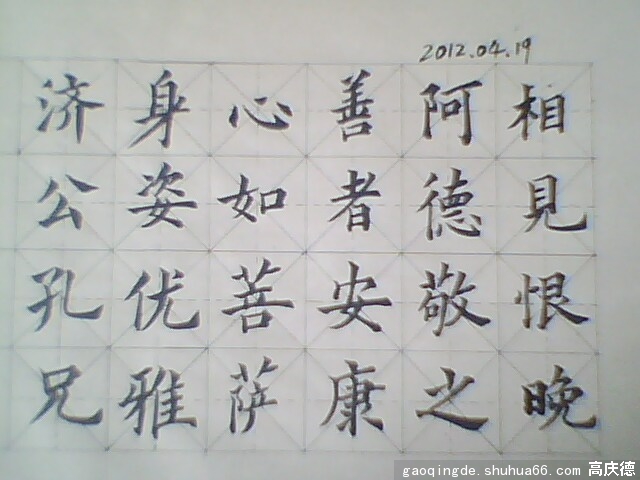 2012.04.19
济公孔兄
身姿优雅
心如菩萨
善者安康
阿德敬之
相見恨晚
gaoqingde.shuhua66.com 高庆德